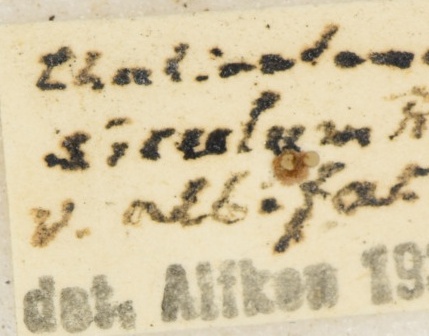 Chalicodoma
siculum R
v. albifac
det. Alfken 19